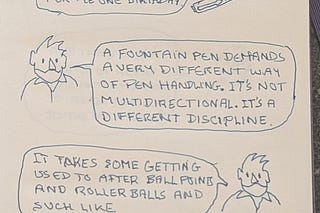 FOR ME ONE BIRTHDAY
A FOUNTAIN PEN DEMANDS
A VERY DIFFERENT WAY
OF PEN HANDLING. IT'S NOT
MULTIDIRECTIONAL. IT'S A
DIFFERENT DISCIPLINE.
IT TAKES SOME GETTING
USED TO AFTER BALLPOINT
AND ROLLERBALLS AND
SUCH LIKE